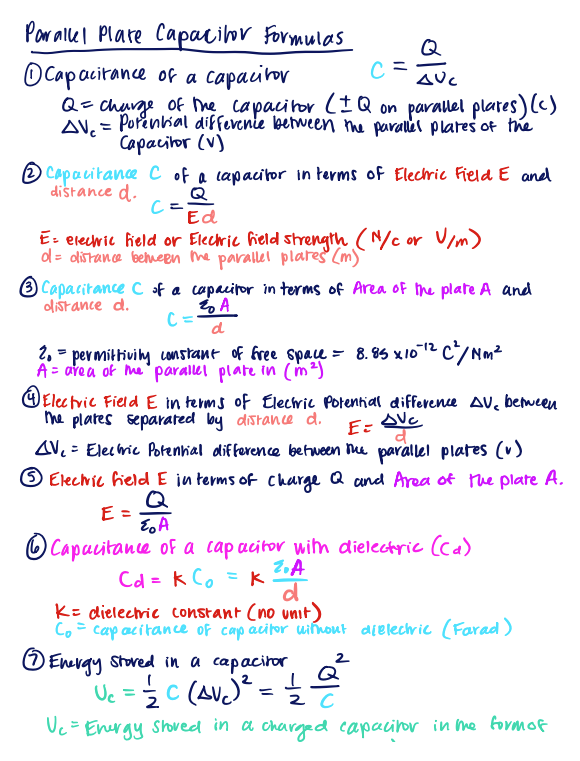 Parallel Plate Capacitor Formulas
① Capacitance of a capacitor C = Q/ΔVc
Q = charge of the capacitor (±Q on parallel plates) (c)
ΔVc = Potential difference between the parallel plates of the
Capacitor (V)
② Capacitance C of a capacitor in terms of Electric Field E and
distance d.
C = Q/Ed
E = electric field or Electric field strength (N/c or V/m)
d = distance between the parallel plates (m)
③ Capacitance C of a capacitor in terms of Area of the plate A and
distance d.
C = ε₀A/d
ε₀ = permittivity constant of free space = 8.85 x10⁻¹² C²/Nm²
A = area of the parallel plate in (m²)
④ Electric Field E in terms of Electric Potential difference ΔVc between
the plates separated by distance d. E = ΔVc/d
ΔVc = Electric Potential difference between the parallel plates (v)
⑤ Electric field E in terms of charge Q and Area of the plate A.
E = Q/ε₀A
⑥ Capacitance of a capacitor with dielectric (Cd)
Cd = K C₀ = K ε₀A/d
K = dielectric constant (no unit)
C₀ = capacitance of capacitor without dielectric (Farad)
⑦ Energy stored in a capacitor
Uc = 1/2 C (ΔVc)² = 1/2 Q²/C
Uc = Energy stored in a charged capacitor in the form of